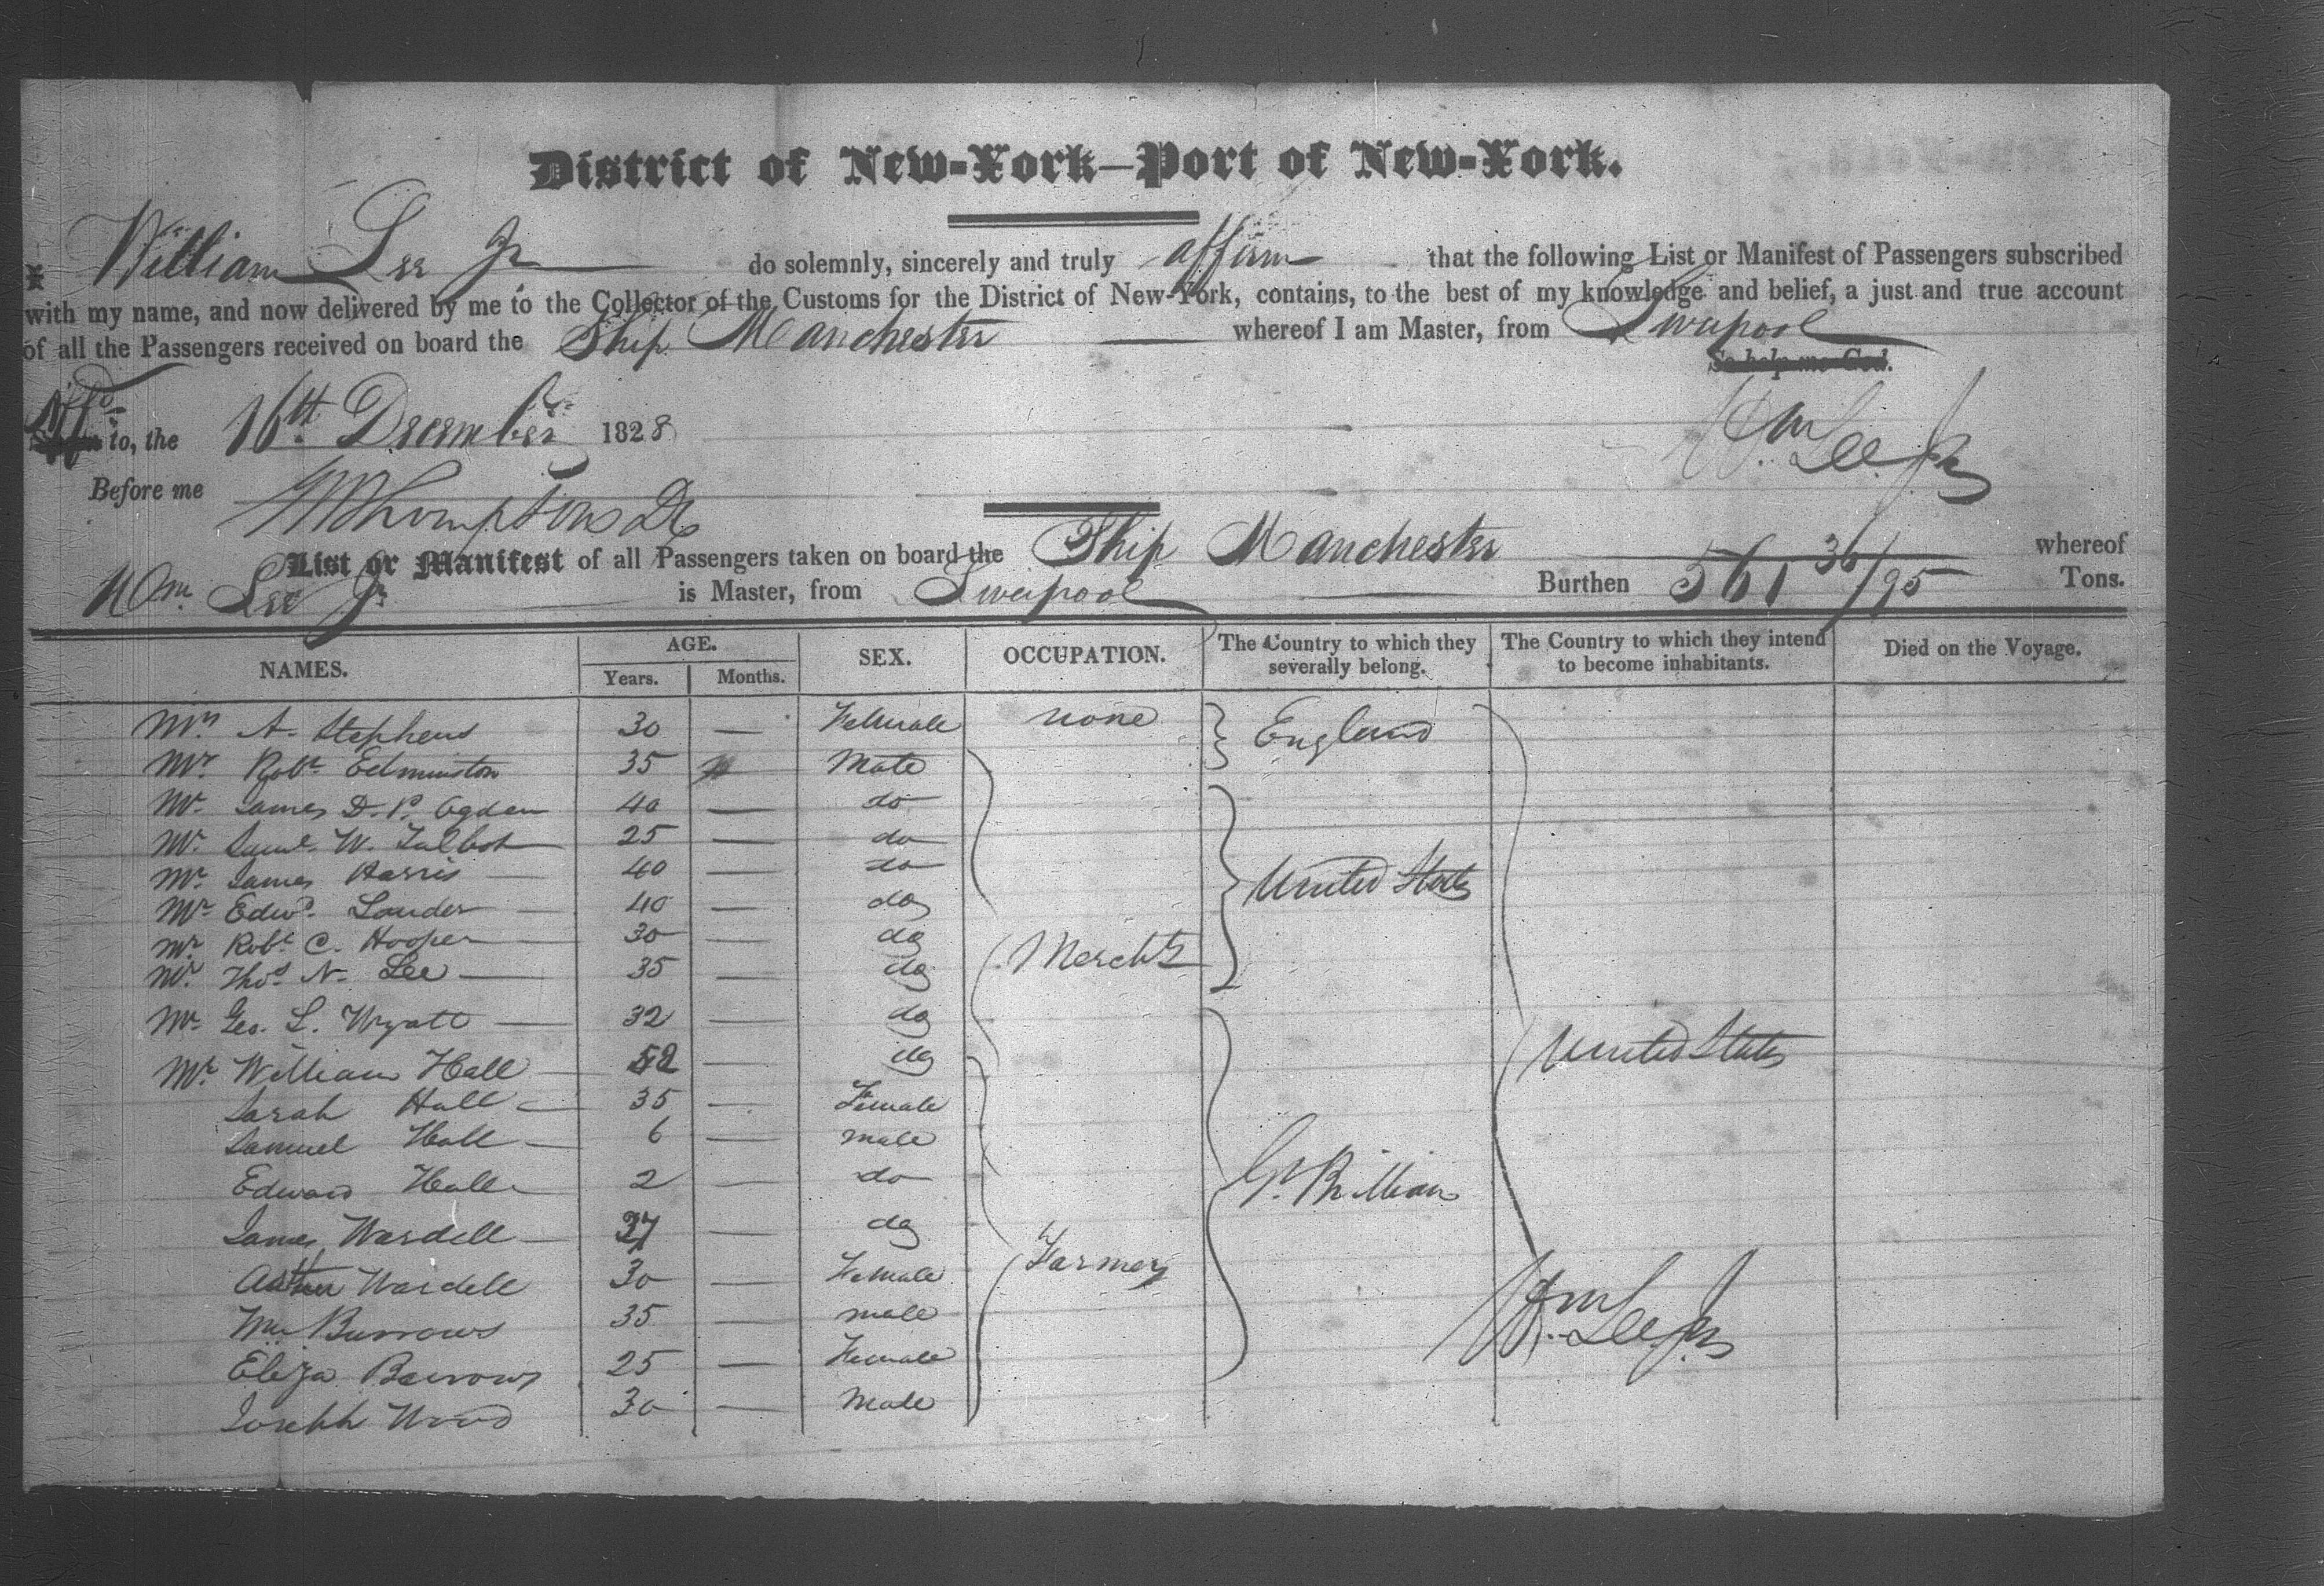 District of New-York—Port of New-York.
I William Lee Jr do solemnly, sincerely and truly affirm that the following List or Manifest of Passengers subscribed
with my name, and now delivered by me to the Collector of the Customs for the District of New-York, contains, to the best of my knowledge and belief, a just and true account
of all the Passengers received on board the Ship Manchester whereof I am Master, from Liverpool
So help me God.
to, the 16th December 1828
Wm Lee Jr
Before me
List or Manifest of all Passengers taken on board the Ship Manchester whereof
Wm Lee Jr is Master, from Liverpool Burthen 561 36/95 Tons.
NAMES. AGE. Years. Months. SEX. OCCUPATION. The Country to which they severally belong. The Country to which they intend to become inhabitants. Died on the Voyage.
Mrs A. Stephens 30 — Female none England
Mr Robt Edminston 35 Male
Mr James D. P. Ogden 40 — do
Mr Saml W. Talbot 25 — do
Mr James Harris — 40 — do United States
Mr Edwd. Lauder — 40 — do
Mr Robt C. Hooper — 30 — do Merchts
Mr Thos N. Lee — 35 — do
Mr Geo. L. Wyatt — 32 — do
Mr William Hall — 52 — do United States
Sarah Hall — 35 — Female
Samuel Hall — 6 — male
Edward Hall — 2 — do Gt Brittian
James Wardell — 37 — do
Wardell 30 — Female Farmers
Wm Burrows 35 — male Wm Lee Jr
Eliza Burrows 25 — Female
Joseph Wood 30 — Male